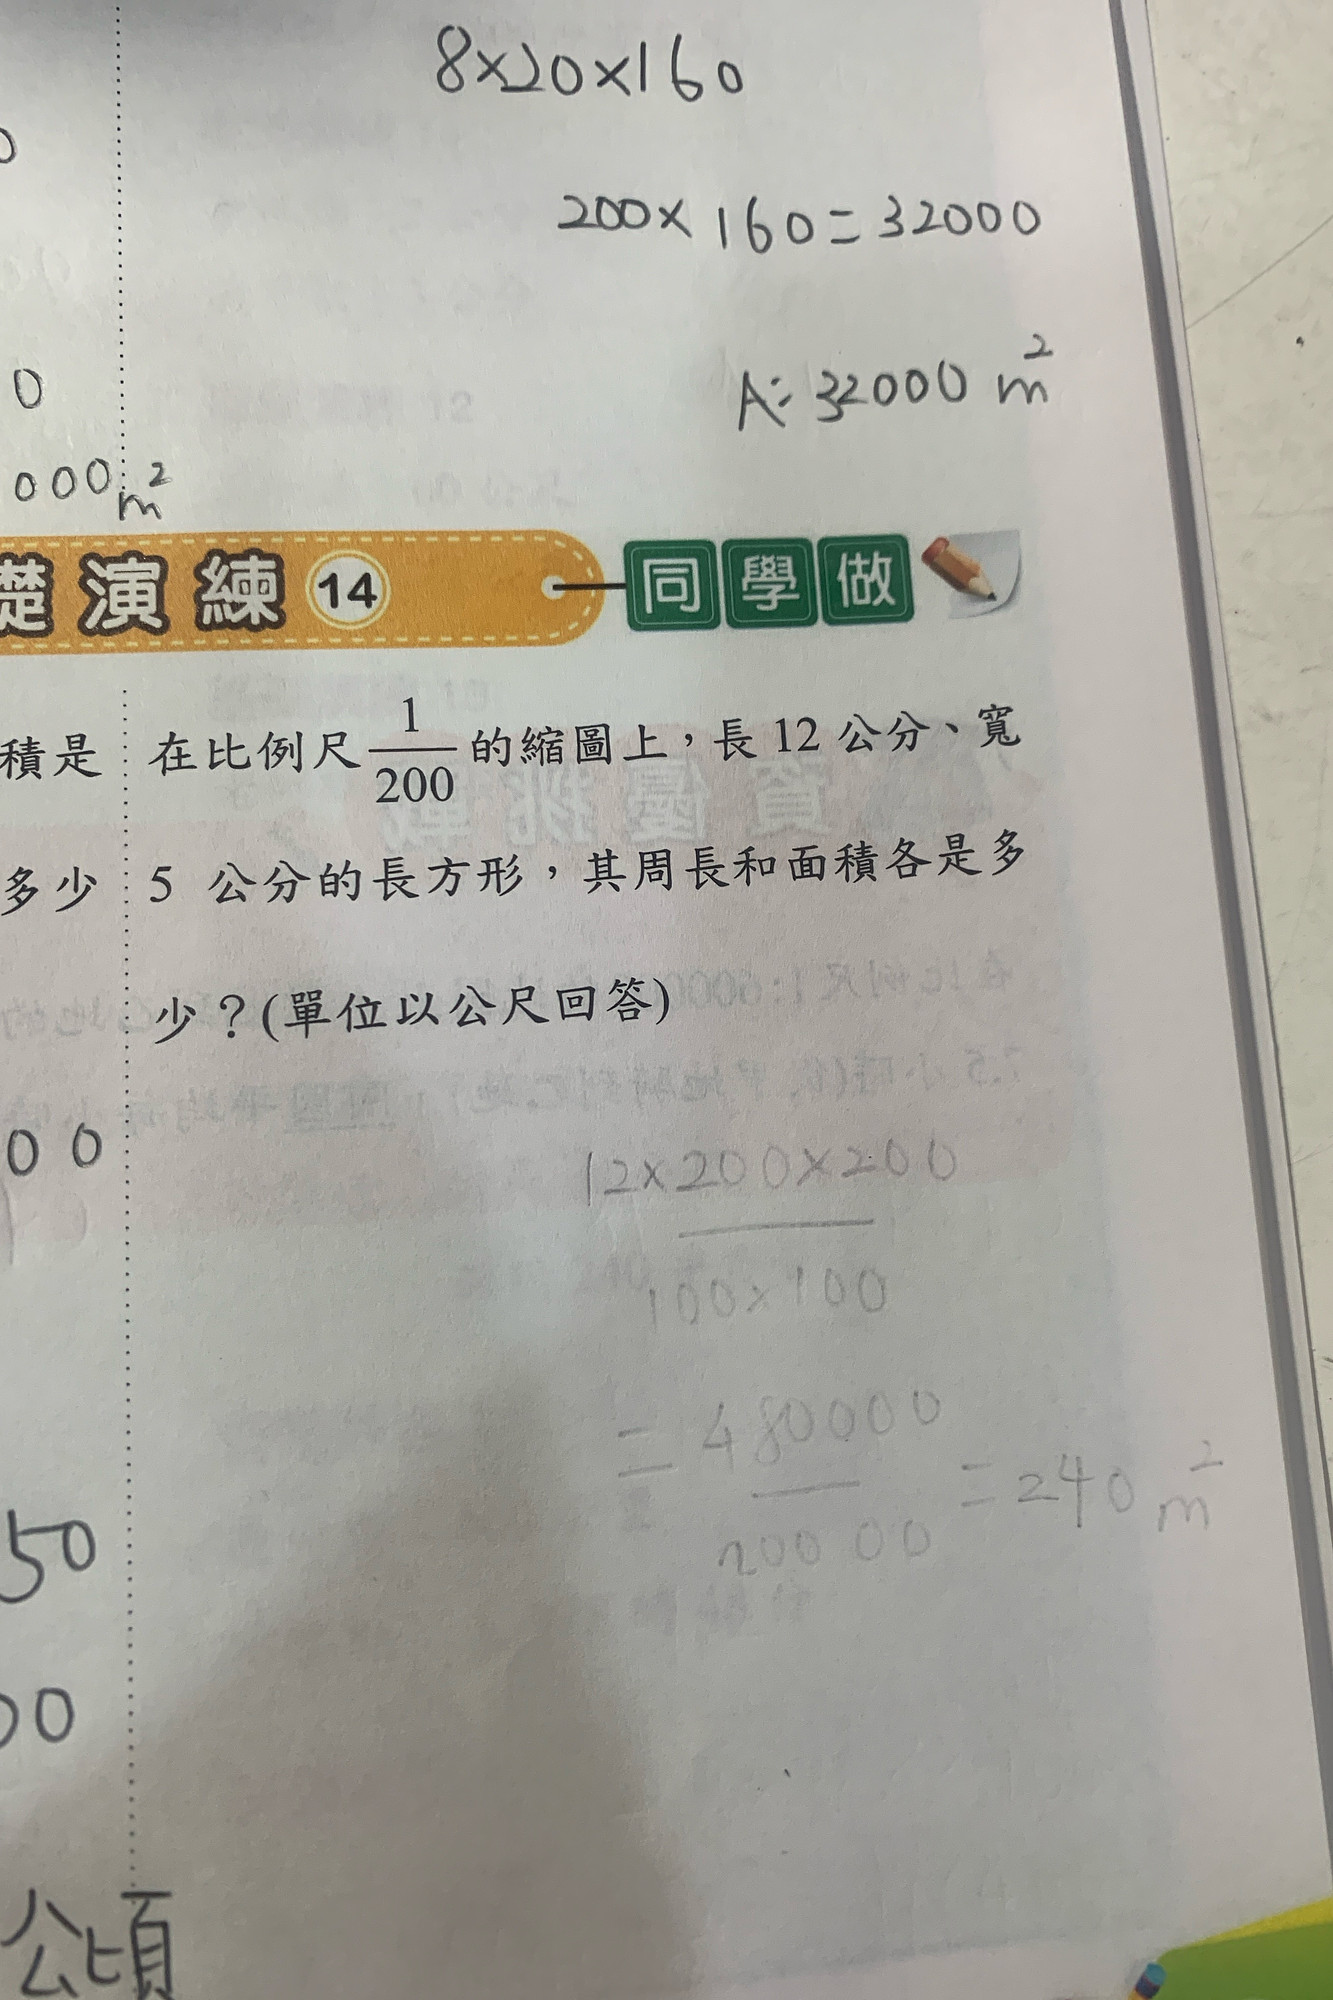 8×20×160
200×160=32000
A:32000 m²
0
000 m²
礎演練 14 同學做
積是
在比例尺 1/200 的縮圖上，長 12 公分、寬
多少
5 公分的長方形，其周長和面積各是多
少？(單位以公尺回答)
00
12×200×200
100×100
= 480000 / 20000 = 240 m²
50
00
公頃